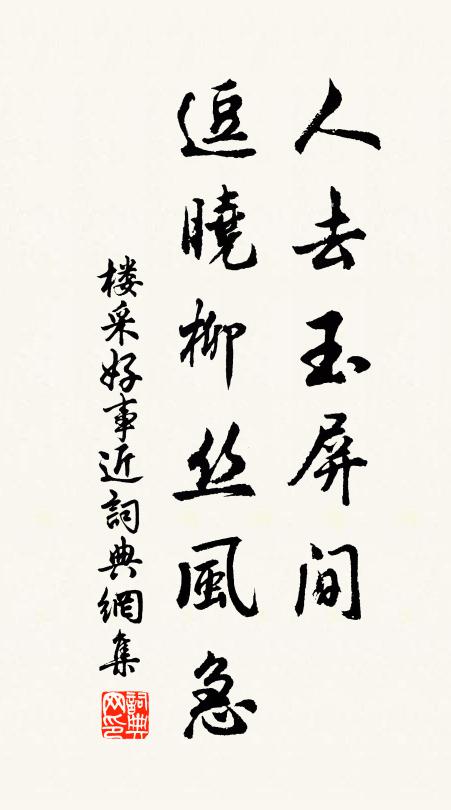 人去玉屏间
逗曉柳丝風急
楼采好事近詞典網集
詞典
网印